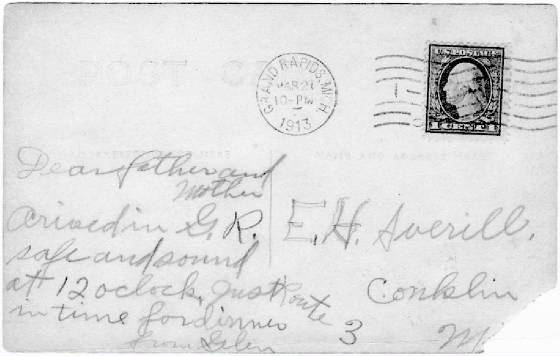 POST CARD
GRAND RAPIDS, MICH.
MAR 2
10-PM
1913
U.S. POSTAGE
Dear father and
Mother
arived in G. R.
safe and sound
at 12 oclock, Just
in time for dinner
from Glen
E. H. Averill.
Conklin
Route
3
Mi